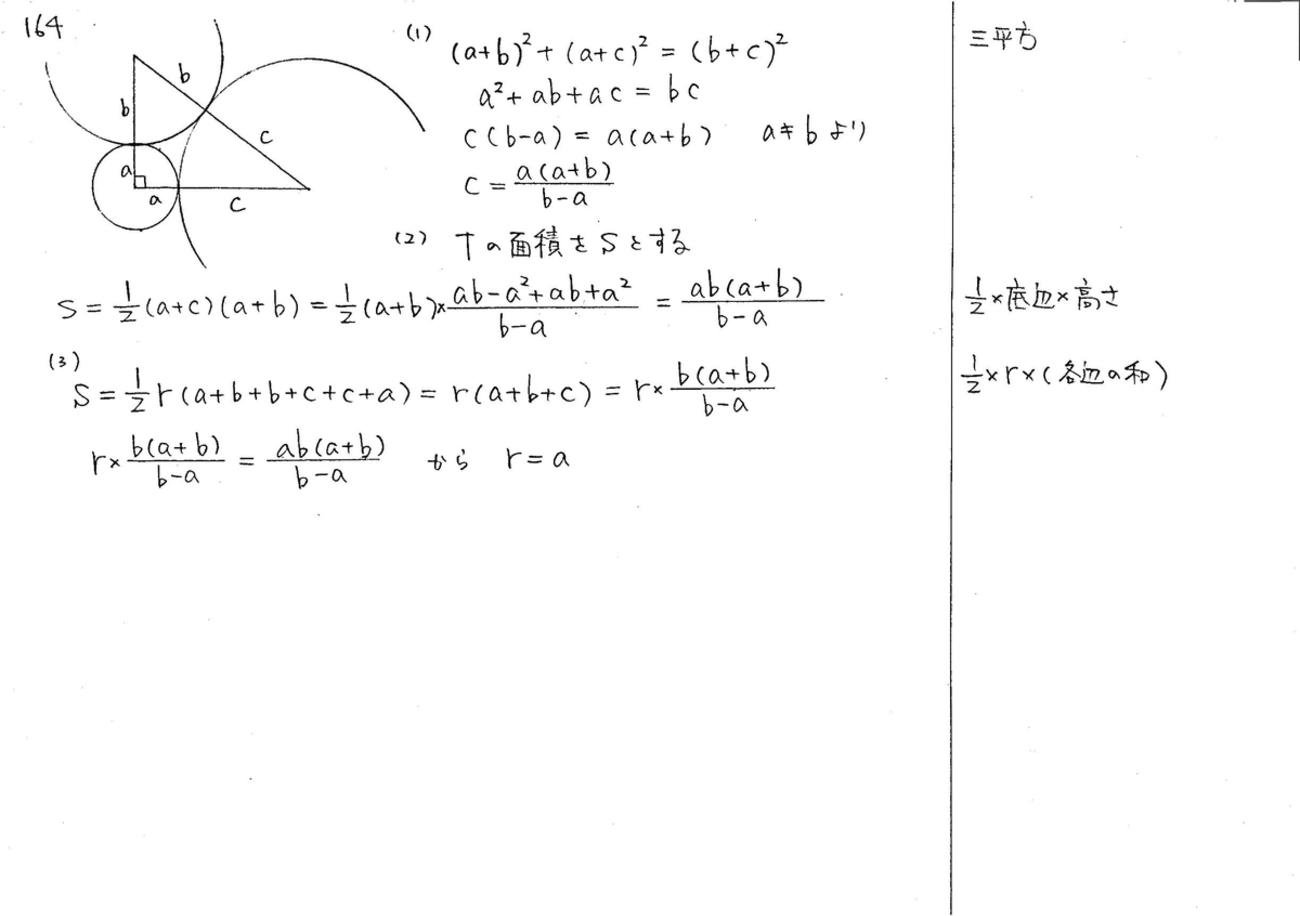 164
b
b
c
a
a
c
(1)
(a+b)²+(a+c)²=(b+c)²
a²+ab+ac=bc
c(b-a)=a(a+b) a≠bより
c=\frac{a(a+b)}{b-a}
三平方
(2) Tの面積をSとする
S=\frac{1}{2}(a+c)(a+b)=\frac{1}{2}(a+b)×\frac{ab-a²+ab+a²}{b-a}=\frac{ab(a+b)}{b-a}
\frac{1}{2}×底辺×高さ
(3)
S=\frac{1}{2}r(a+b+b+c+c+a)=r(a+b+c)=r×\frac{b(a+b)}{b-a}
\frac{1}{2}×r×(各辺の和)
r×\frac{b(a+b)}{b-a}=\frac{ab(a+b)}{b-a} から r=a